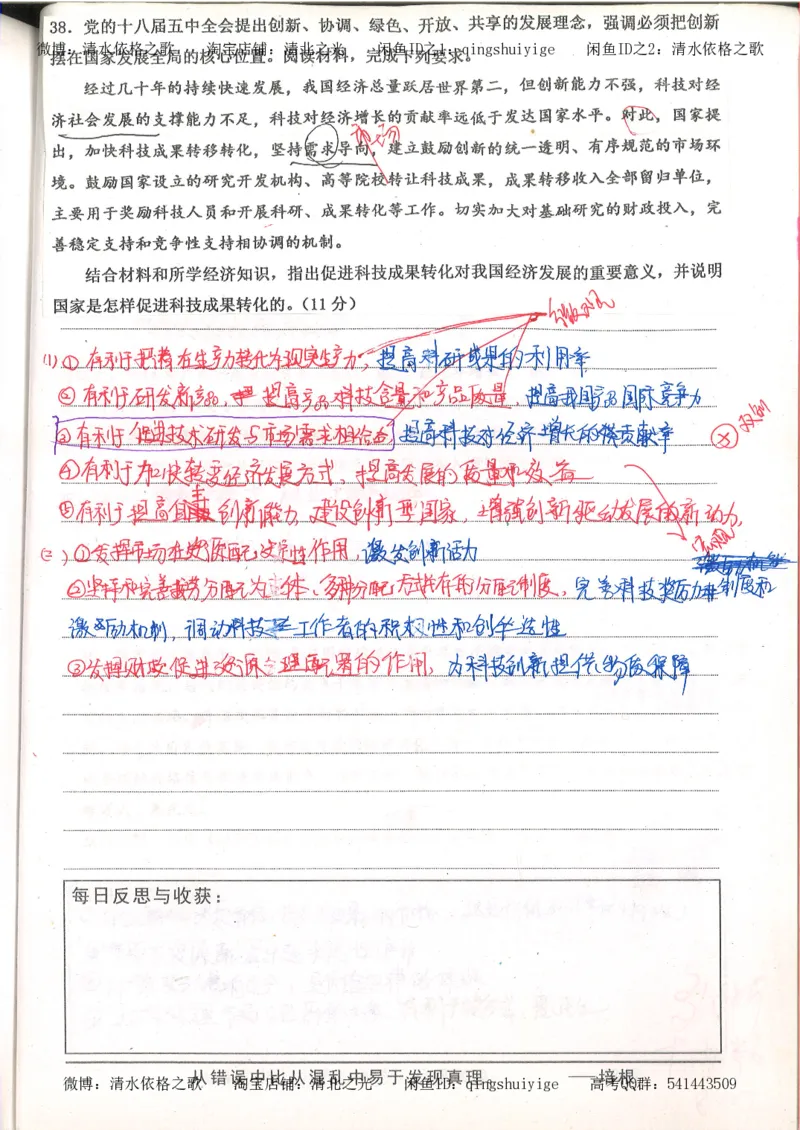 38. 党的十八届五中全会提出创新、协调、绿色、开放、共享的发展理念，强调必须把创新
微博：清水依格之歌 淘宝店铺：清北之光 闲鱼ID之1：qingshuiyige 闲鱼ID之2：清水依格之歌
摆在国家发展全局的核心位置。阅读材料，完成下列要求。
经过几十年的持续快速发展，我国经济总量跃居世界第二，但创新能力不强，科技对经
济社会发展的支撑能力不足，科技对经济增长的贡献率远低于发达国家水平。对此，国家提
市场
出，加快科技成果转移转化，坚持需求导向，建立鼓励创新的统一透明、有序规范的市场环
境。鼓励国家设立的研究开发机构、高等院校转让科技成果，成果转移收入全部留归单位，
主要用于奖励科技人员和开展科研、成果转化等工作。切实加大对基础研究的财政投入，完
善稳定支持和竞争性支持相协调的机制。
结合材料和所学经济知识，指出促进科技成果转化对我国经济发展的重要意义，并说明
国家是怎样促进科技成果转化的。（11分）
微观
(1) ①有利于把潜在生产力转化为现实生产力，提高科研成果的利用率
②有利于研发新产品，提高产品科技含量和产品质量，提高我国产品国际竞争力
③有利于促进技术研发与市场需求相结合，提高科技对经济增长的贡献率
④有利于加快转变经济发展方式，提高发展的质量和效益
⑤有利于提高自主创新能力，建设创新型国家，增强创新驱动发展的新动力，
宏观
(2) ①发挥市场在资源配置决定性作用，激发创新活力
②坚持和完善按劳分配为主体、多种分配方式共存的分配制度，完善科技奖励制度和
激励机制，调动科技工作者的积极性和创造性
③发挥财政促进资源合理配置的作用，为科技创新提供物质保障
每日反思与收获：
从错误中比从混乱中易于发现真理 ——培根
微博：清水依格之歌 淘宝店铺：清北之光 闲鱼ID：qingshuiyige 高考QQ群：541443509